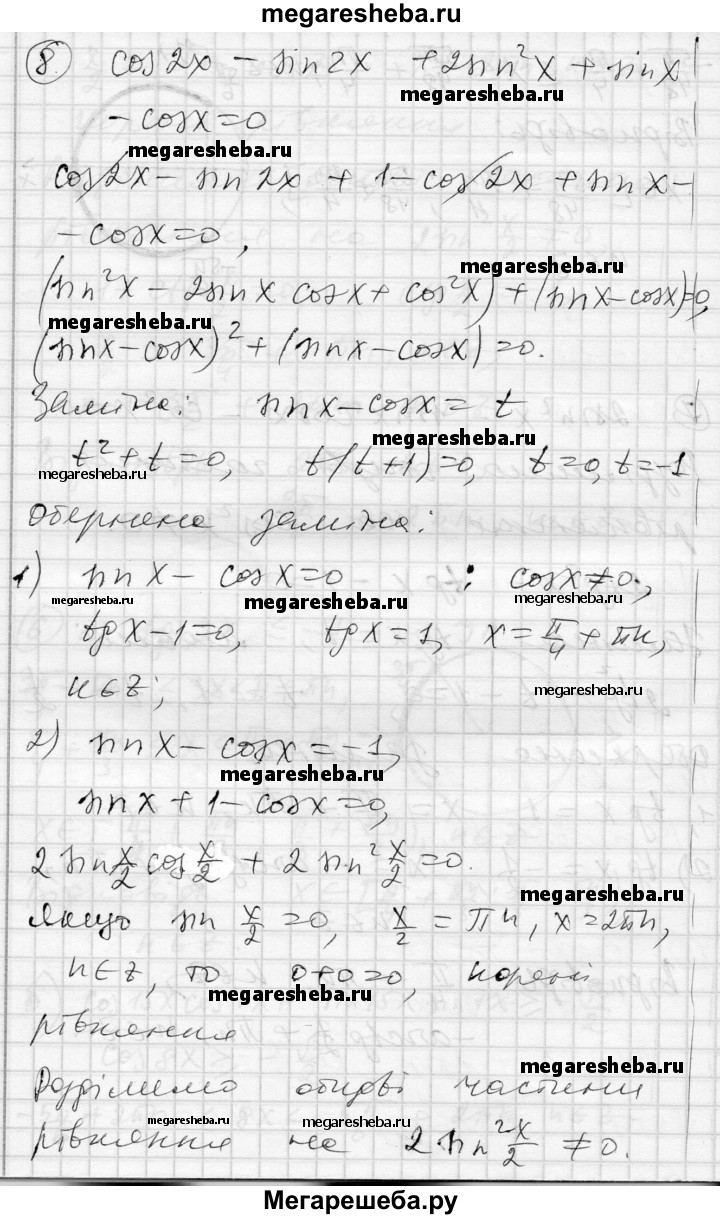 megaresheba.ru
8. cos2x - sin2x + 2sin²x + sinx
megaresheba.ru
- cosx = 0
megaresheba.ru
cos2x - sin2x + 1 - cos2x + sinx -
- cosx = 0,
megaresheba.ru
(sin²x - 2sinx cosx + cos²x) + (sinx - cosx) = 0,
megaresheba.ru
(sinx - cosx)² + (sinx - cosx) = 0.
Заміна: sinx - cosx = t
megaresheba.ru
t² + t = 0, t(t+1) = 0, t = 0, t = -1
megaresheba.ru
Обернена заміна:
1) sinx - cosx = 0 : cosx ≠ 0;
megaresheba.ru megaresheba.ru megaresheba.ru
tgx - 1 = 0, tgx = 1, x = π/4 + πn,
n∈Z;
megaresheba.ru
2) sinx - cosx = -1,
megaresheba.ru
sinx + 1 - cosx = 0,
2 sin x/2 cos x/2 + 2 sin² x/2 = 0.
megaresheba.ru
Якщо sin x/2 = 0, x/2 = πn, x = 2πn,
n∈Z, то 0+0=0, корені
megaresheba.ru
рівняння
megaresheba.ru
Розділимо обидві частини
megaresheba.ru megaresheba.ru
рівняння на 2 sin² x/2 ≠ 0.
Мегарешеба.ру